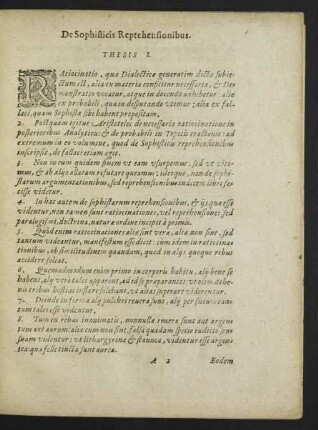 De Sophisticis Reprehensionibus.
THESIS I.
RAtiocinatio, quæ Dialecticæ generatim dictæ subie-
ctum est, alia ex materia conficitur necessaria, & De-
monstratio vocatur, atque in docendo adhibetur: alia
ex probabili, qua in disputando vtimur: alia ex fal-
laci, quam Sophistæ sibi habent propositam.
2. Postquam igitur Aristoteles de necessaria ratiocinatione in
posterioribus Analyticis: & de probabili in Topicis tractauit: ad
extremum in eo volumine, quod de Sophisticis reprehensionibus
inscripsit, de fallaci etiam agit.
3. Non in eum quidem finem vt eam vsurpemus: sed vt vite-
mus, & ab alijs allatam refutare queamus: ideoque, non de sophi-
starum argumentationibus, sed reprehensionibus indicem libro fe-
cisse videtur.
4. In hac autem de sophistarum reprehensionibus, & ijs quæ esse
videntur, non tamen sunt ratiocinationes, vel reprehensiones, sed
paralogismi, doctrina, natura ordine incipit à primis.
5. Quòd enim ratiocinationes aliæ sint veræ, aliæ non sint, sed
tantum videantur, manifestum esse dicit: cum idem in ratiocina-
tionibus, ob similitudinem quandam, quod in alijs quoque rebus
accidere soleat.
6. Quemadmodum enim primo in corporis habitu, alij bene se
habent, alij verò tales apparent, ad id se præparantes: vt olim Athe-
nis tribus hostias inflare solebant, vt alias superare viderentur.
7. Deinde in forma alij pulchri reuera sunt, alij per fucum tan-
tum tales esse videntur.
8. Tum in rebus inanimatis, nonnulla reuera sunt aut argen-
tum aut aurum: aliæ cum non sint, falsa quadam specie iudicio sen-
suum videntur: vt lithargyrina & stannea, videntur esse argen-
tea: quæ felle tincta sunt aurea.
A 2 Eodem